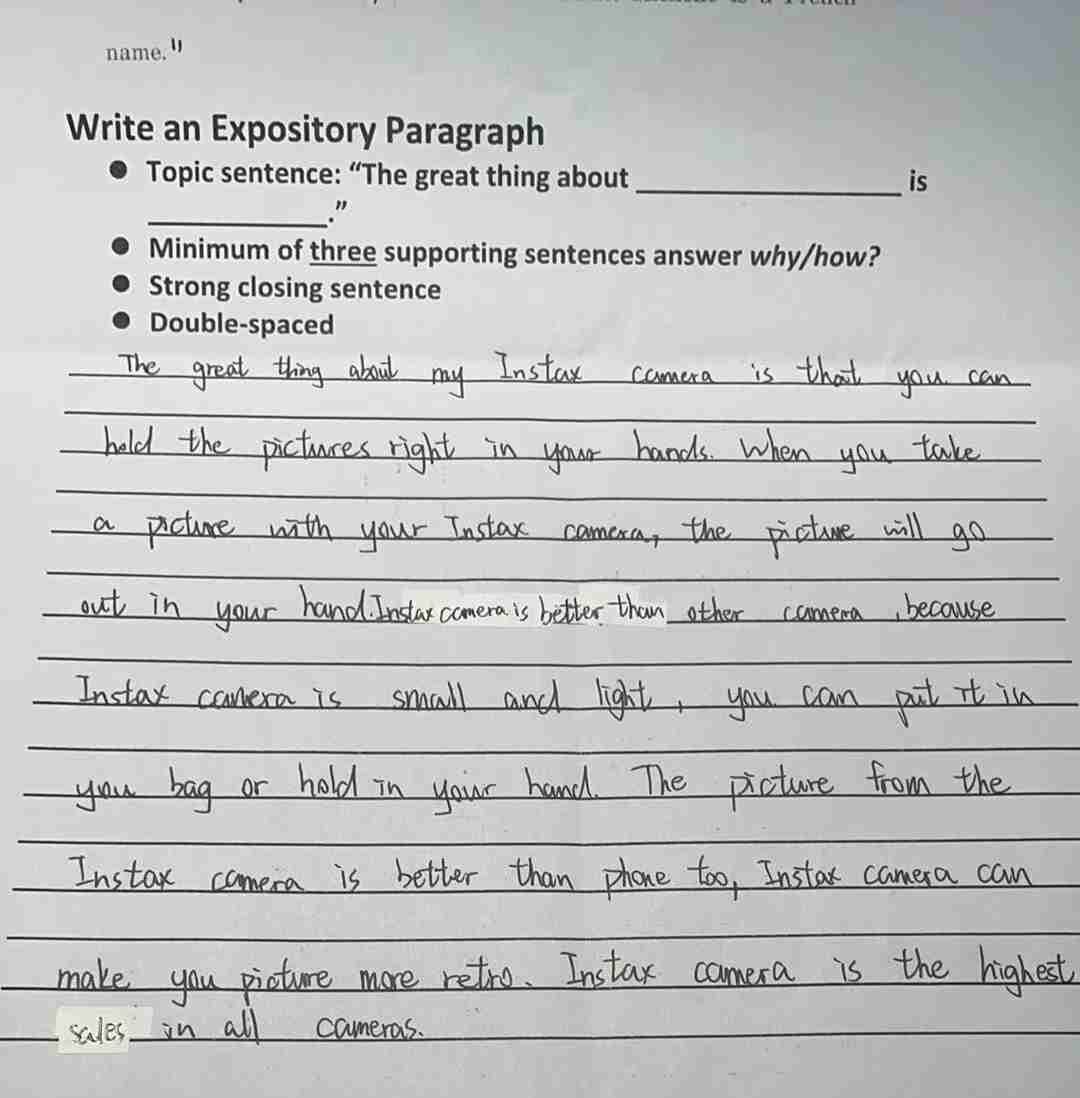 name."
Write an Expository Paragraph
● Topic sentence: “The great thing about ____________________ is
______________.”
● Minimum of three supporting sentences answer why/how?
● Strong closing sentence
● Double-spaced
The great thing about my Instax camera is that you can
hold the pictures right in your hands. When you take
a picture with your Instax camera, the picture will go
out in your hand. Instax camera is better than other camera, because
Instax camera is small and light, you can put it in
you bag or hold in your hand. The picture from the
Instax camera is better than phone too, Instax camera can
make you picture more retro. Instax camera is the highest
sales in all cameras.